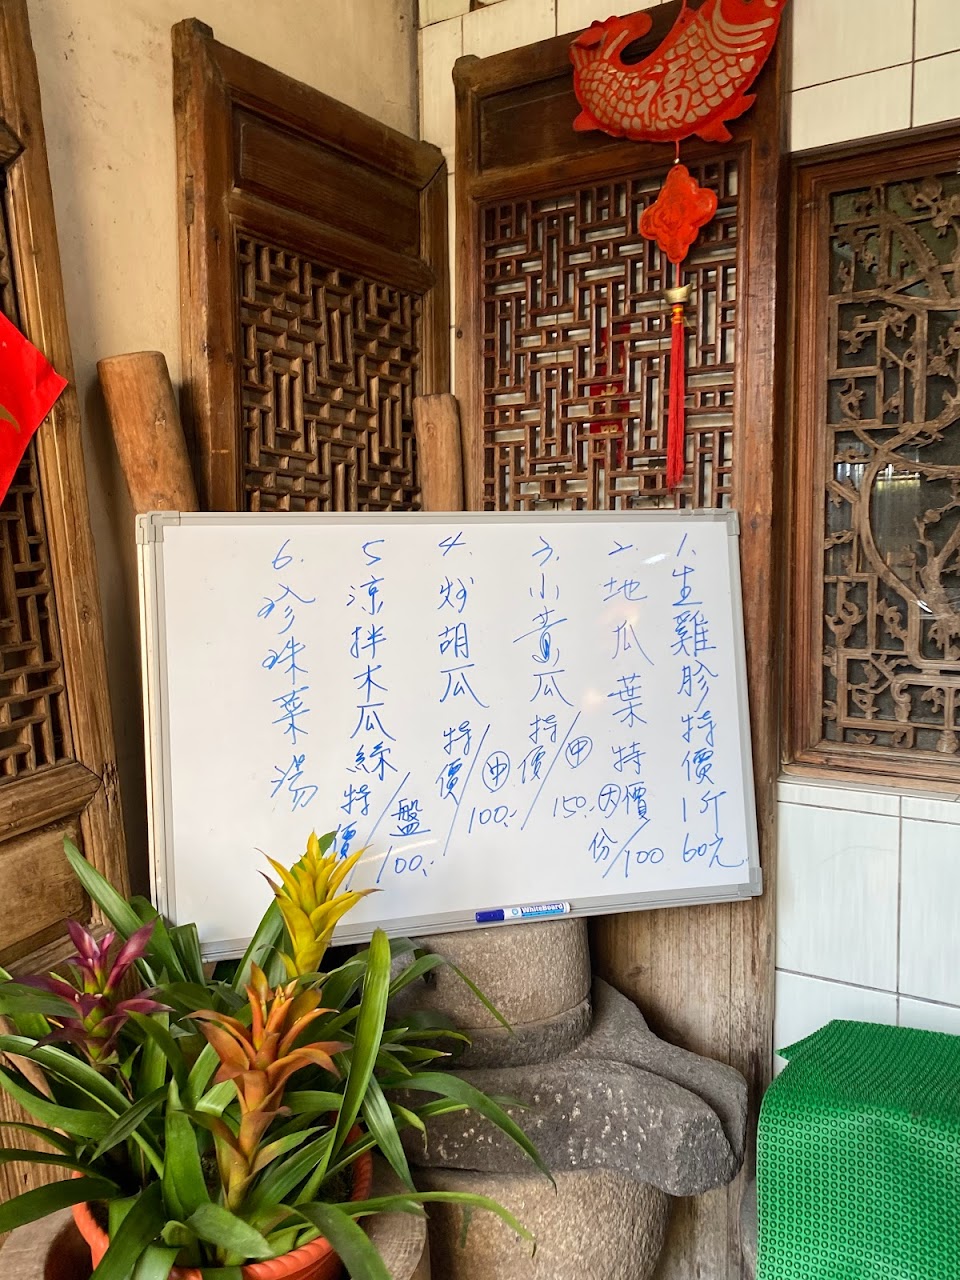 福
1.生雞胗特價1斤60元
2.地瓜葉特價份/100
3.小黃瓜特價/中150.
4.炒胡瓜特價/中100.
5涼拌木瓜絲特價/盤100.
6.珍珠菜湯
WhiteBoard